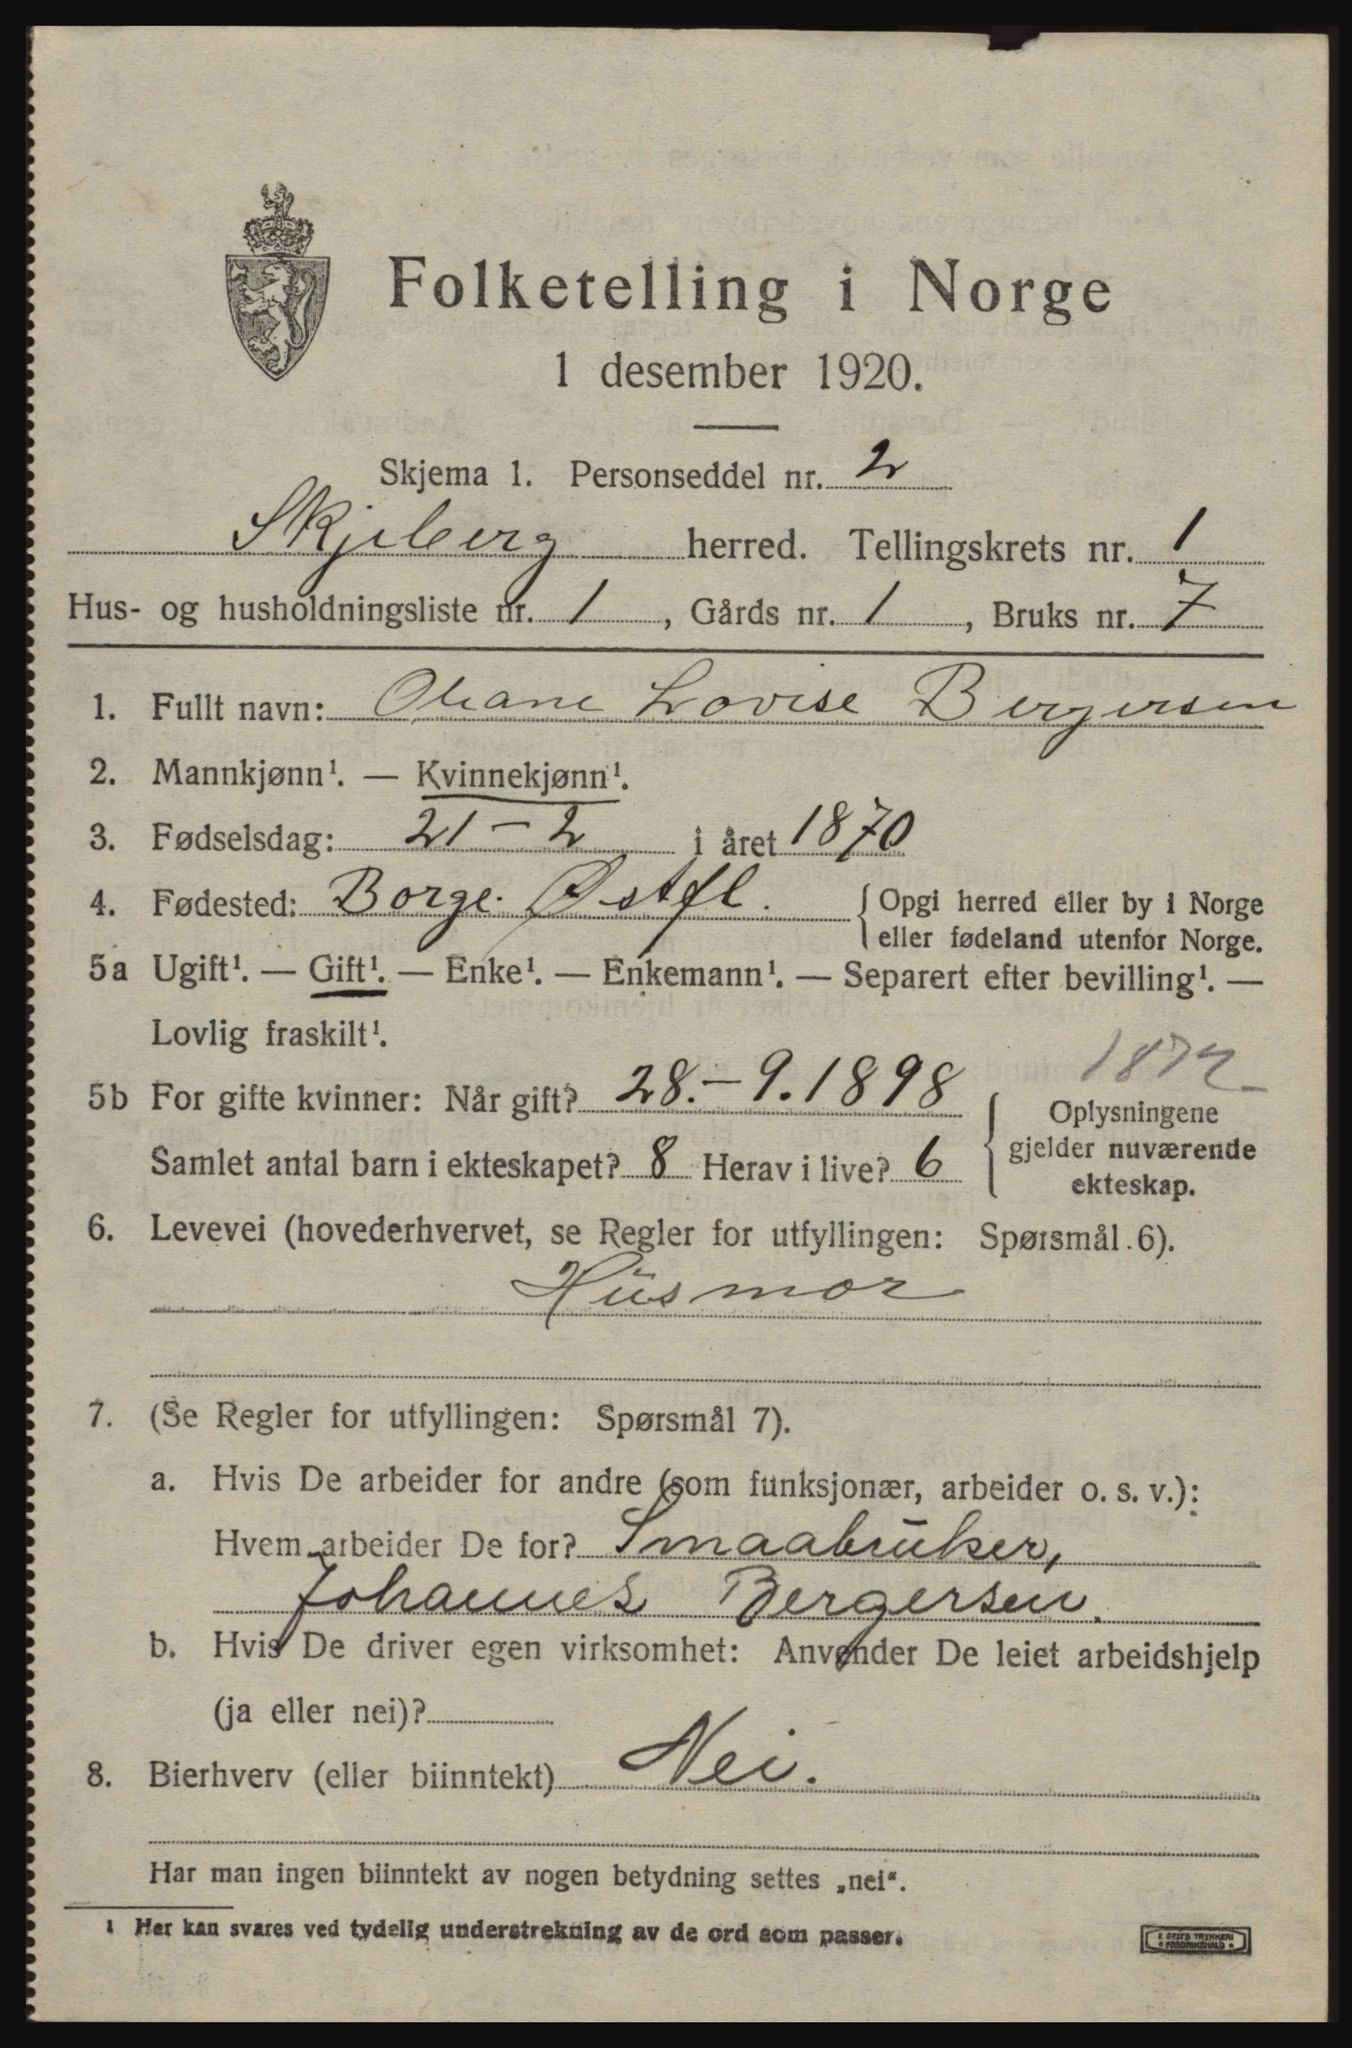 Folketelling i Norge
1 desember 1920.
Skjema 1. Personseddel nr. 2
Skjeberg herred. Tellingskrets nr. 1
Hus- og husholdningsliste nr. 1, Gårds nr. 1, Bruks nr. 7
1. Fullt navn: Oleane Lovise Bergersen
2. Mannkjønn¹. — Kvinnekjønn¹.
3. Fødselsdag: 21-2 i året 1870
4. Fødested: Borge. Østfl. { Opgi herred eller by i Norge
eller fødeland utenfor Norge.
5a Ugift¹. — Gift¹. — Enke¹. — Enkemann¹. — Separert efter bevilling¹. —
Lovlig fraskilt¹.
5b For gifte kvinner: Når gift? 28.-9.1898
Samlet antal barn i ekteskapet? 8 Herav i live? 6
Oplysningene
gjelder nuværende
ekteskap.
6. Levevei (hovederhvervet, se Regler for utfyllingen: Spørsmål 6).
Husmor
7. (Se Regler for utfyllingen: Spørsmål 7).
a. Hvis De arbeider for andre (som funksjonær, arbeider o. s. v.):
Hvem arbeider De for? Smaabruker,
Johannes Bergersen.
b. Hvis De driver egen virksomhet: Anvender De leiet arbeidshjelp
(ja eller nei)?
8. Bierhverv (eller biinntekt) Nei.
Har man ingen biinntekt av nogen betydning settes „nei“.
¹ Her kan svares ved tydelig understrekning av de ord som passer.